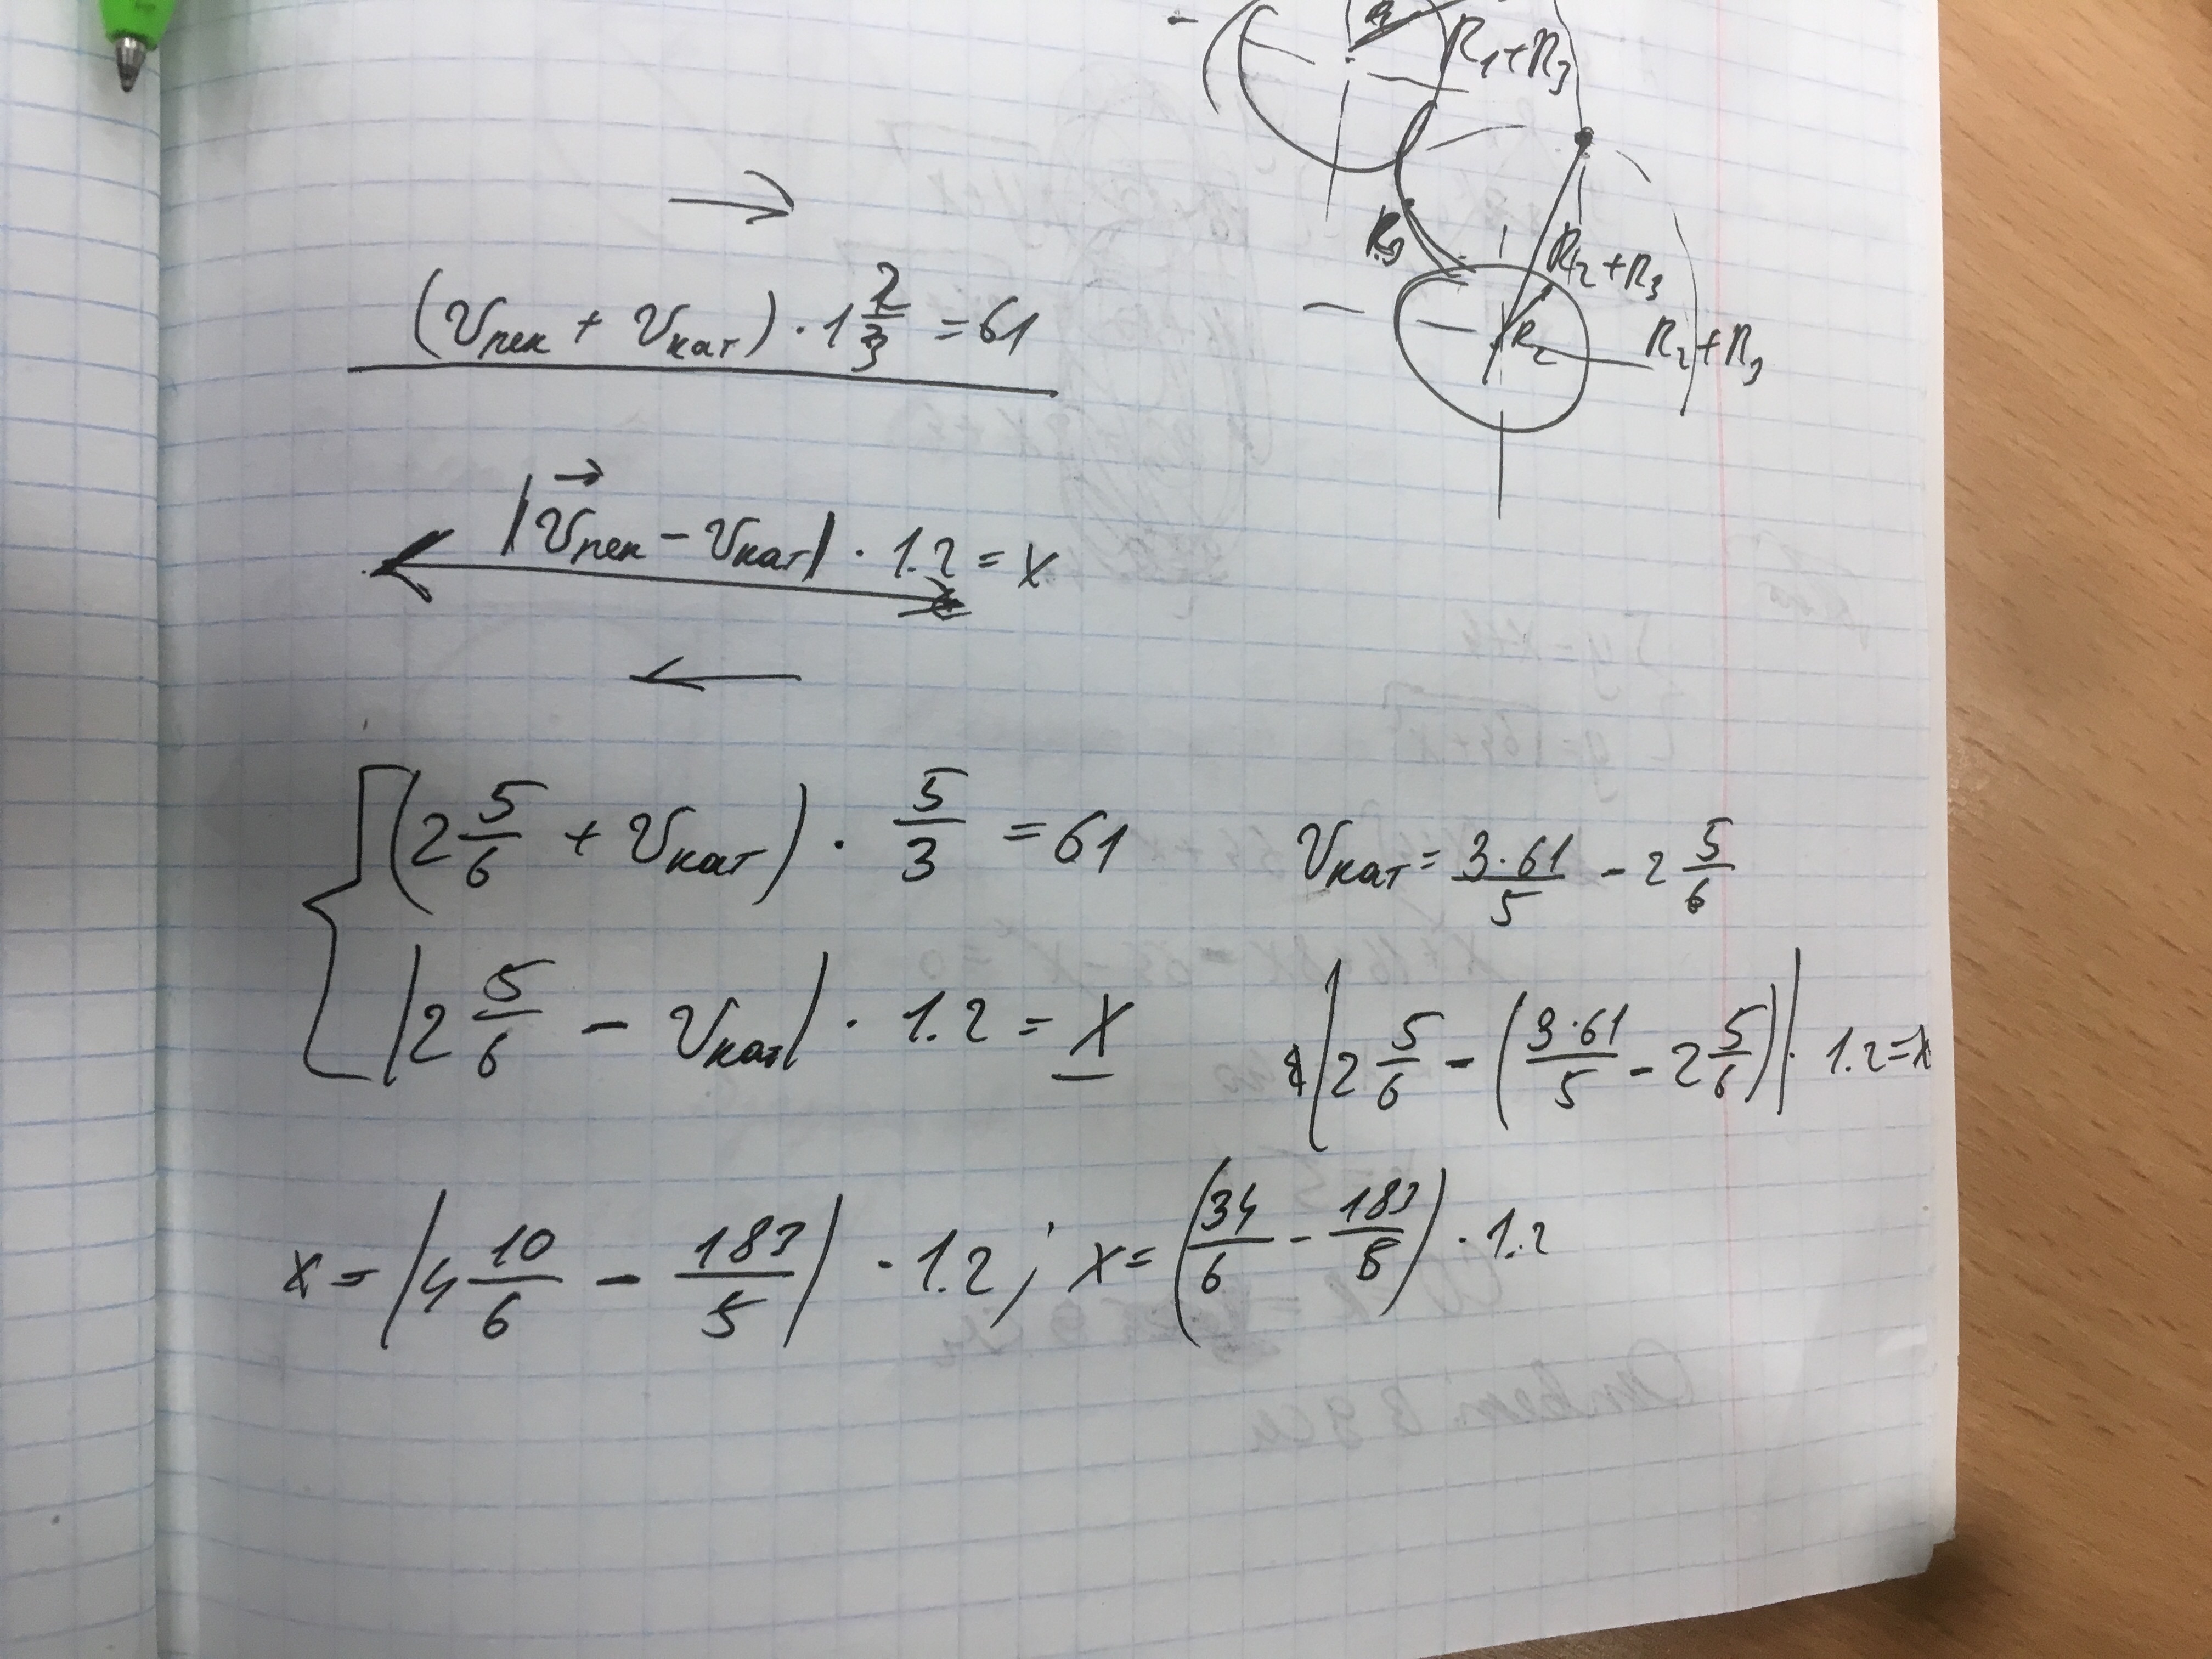 R₁+R₃
R₃
R₂+R₃
R₂
R₂+R₃
(v_рек + v_кат) · 1 2/3 = 61
|v_рек - v_кат| · 1.2 = x
(2 5/6 + v_кат) · 5/3 = 61
v_кат = 3·61/5 - 2 5/6
|2 5/6 - v_кат| · 1.2 = x
|2 5/6 - (3·61/5 - 2 5/6)| · 1.2 = x
x = |4 10/6 - 183/5| · 1.2; x = (34/6 - 183/5) · 1.2